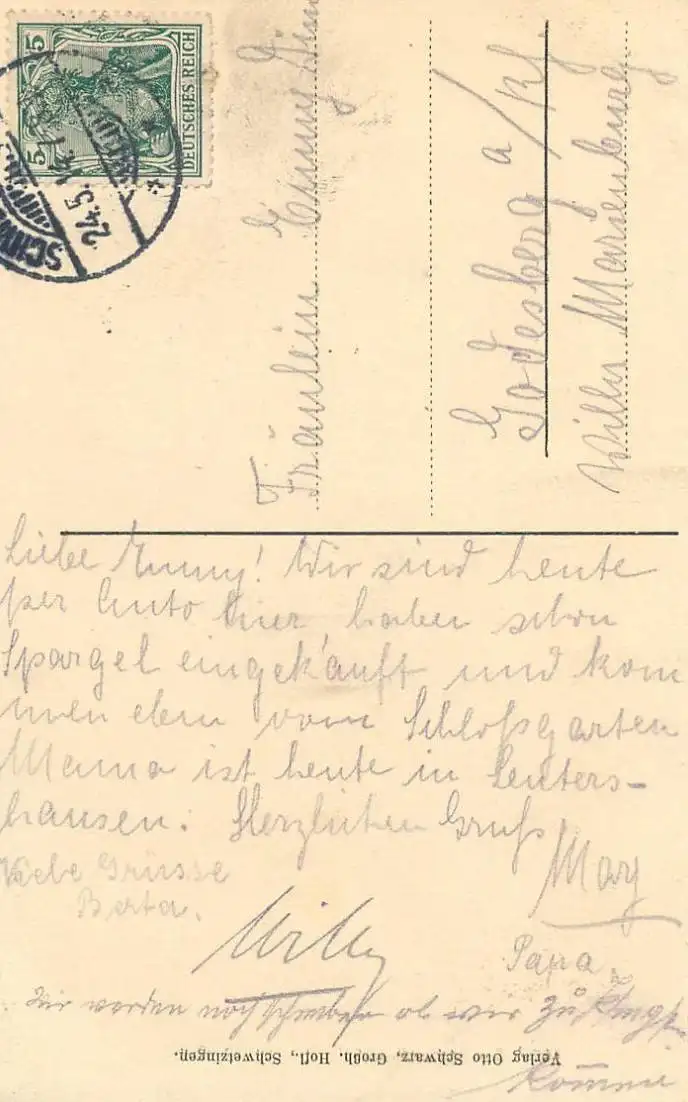 5 DEUTSCHES REICH 5
24.5.
Fräulein Emmy
Godesberg a/Rh.
Villa Marienburg
Liebe Emmy! Wir sind heute
per Auto hier haben schon
Spargel eingekauft und kom
men eben vom Schloßgarten
Mama ist heute in Leuters-
hausen. Herzlichen Gruß
May
Liebe Grüsse
Berta.
Willy
Papa.
Wir werden noch schreiben ob wir zu Pfingst.
kommen
Verlag Otto Schwarz, Großh. Hofl., Schwetzingen.